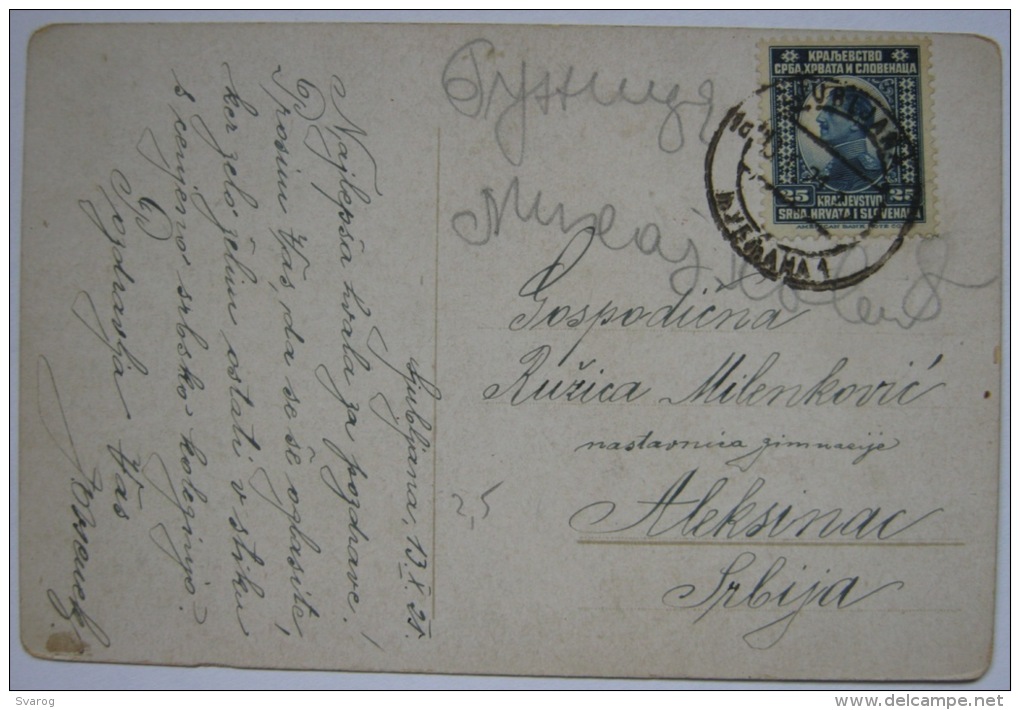 Ljubljana, 13. X. 25.
Najlepša hvala za pozdrave!
Prosim Vas, da se še oglasite,
ker zelo želim ostati v stiku
s cenjeno srbsko koleginjo.
Pozdravlja Vas
Ружица
КРАЉЕВСТВО
СРБА, ХРВАТА И СЛОВЕНАЦА
25 25
KRALJEVSTVO
SRBA, HRVATA I SLOVENACA
AMERICAN BANK NOTE CO.
ЉУБЉАНА 1
Gospodična
Ružica Milenković
nastavnica gimnazije
Aleksinac
Srbija
2,5
Svarog
www.delcampe.net